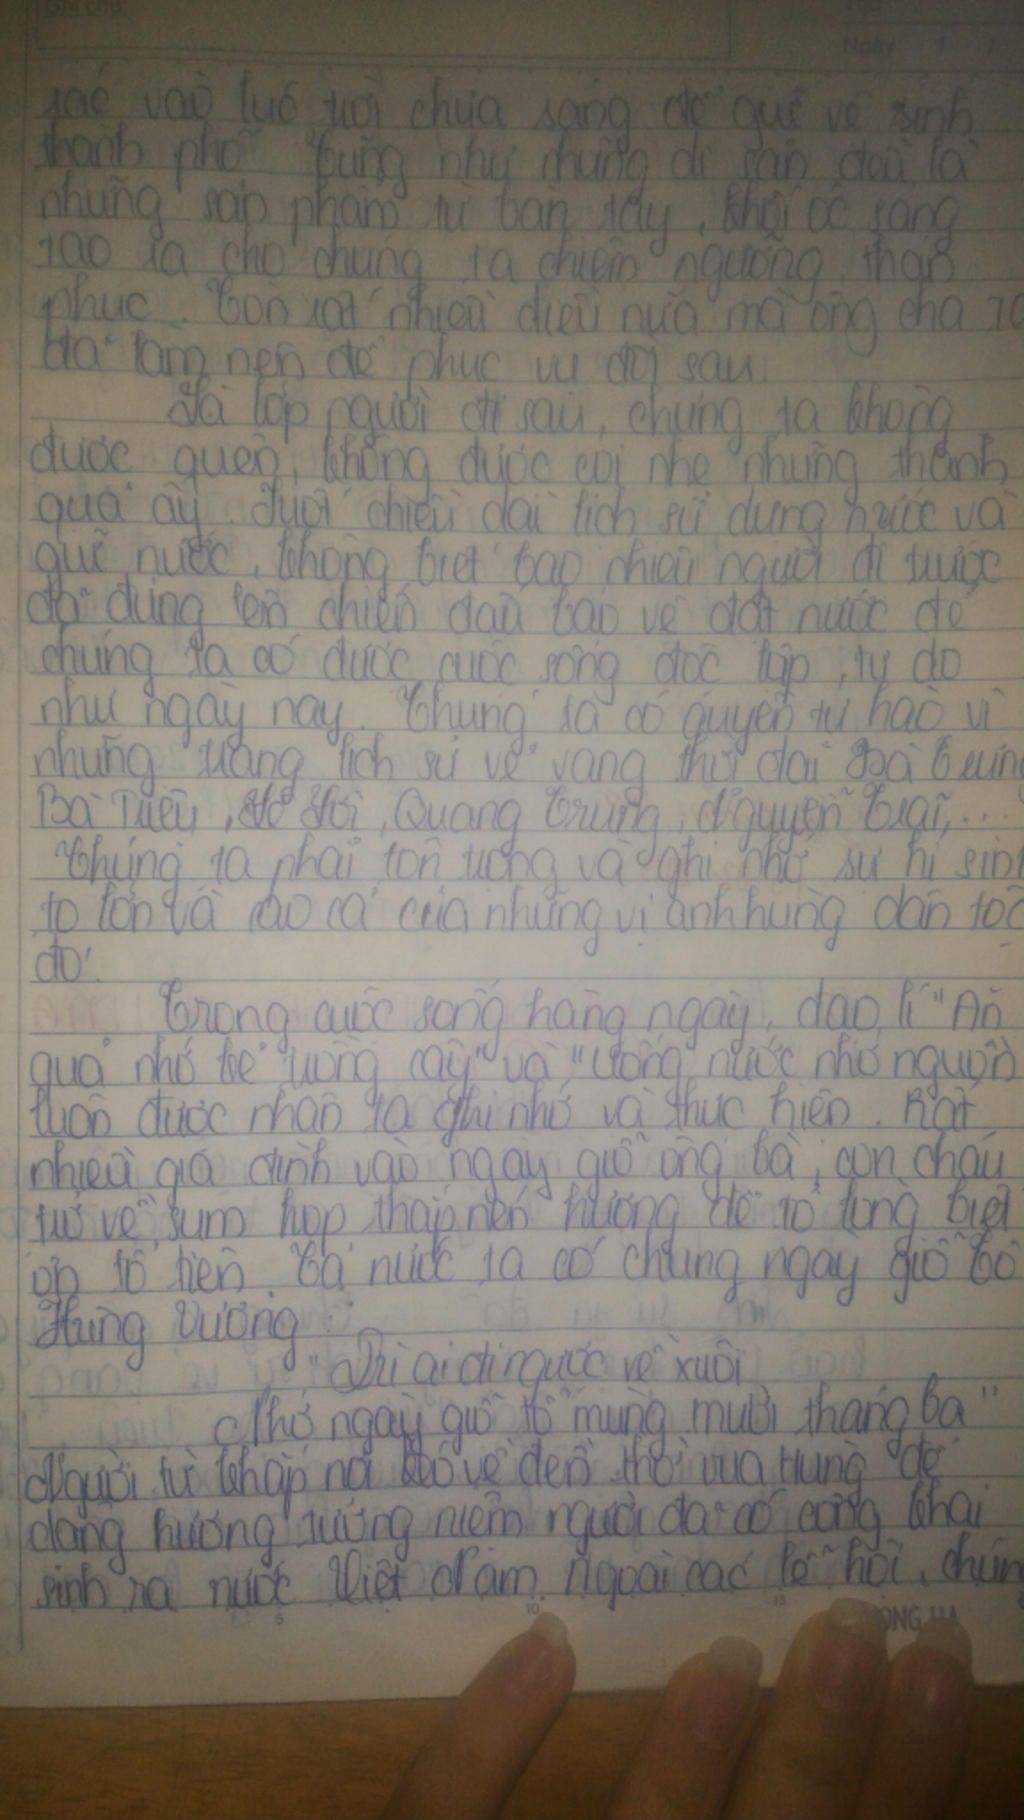 Ghi chú:
Ngày / /
rác vào lúc trời chưa sáng để quét vệ sinh
thành phố. Cũng như những di sản đều là
những sản phẩm từ bàn tay, khối óc sáng
tạo ra cho chúng ta chiêm ngưỡng, thán
phục. Còn rất nhiều điều nữa mà ông cha ta
đã làm nên để phục vụ đời sau.
Là lớp người đi sau, chúng ta không
được quên, không được coi nhẹ những thành
quả ấy. Dưới chiều dài lịch sử dựng nước và
giữ nước, không biết bao nhiêu người đi trước
đã đứng lên chiến đấu bảo vệ đất nước để
chúng ta có được cuộc sống độc lập, tự do
như ngày nay. Chúng ta có quyền tự hào vì
những trang lịch sử vẻ vang thời đại Bà Trưng
Bà Triệu, Lê Lợi, Quang Trung, Nguyễn Trãi,...
Chúng ta phải tôn trọng và ghi nhớ sự hi sinh
to lớn và cao cả của những vị anh hùng dân tộc
đó.
Trong cuộc sống hằng ngày, đạo lí "Ăn
quả nhớ kẻ trồng cây" và "Uống nước nhớ nguồn
luôn được nhân ta ghi nhớ và thực hiện. Rất
nhiều gia đình vào ngày giỗ ông bà, con cháu
tụ về sum họp thắp nén hương để tỏ lòng biết
ơn tổ tiên. Cả nước ta có chung ngày giỗ tổ
Hùng Vương:
"Dù ai đi ngược về xuôi
Nhớ ngày giỗ tổ mùng mười tháng ba"
Người từ khắp nơi đổ về đền thờ vua Hùng để
dâng hương tưởng niệm người đã có công khai
sinh ra nước Việt Nam. Ngoài các lễ hội, chún
5 10 15
HỒNG HÀ